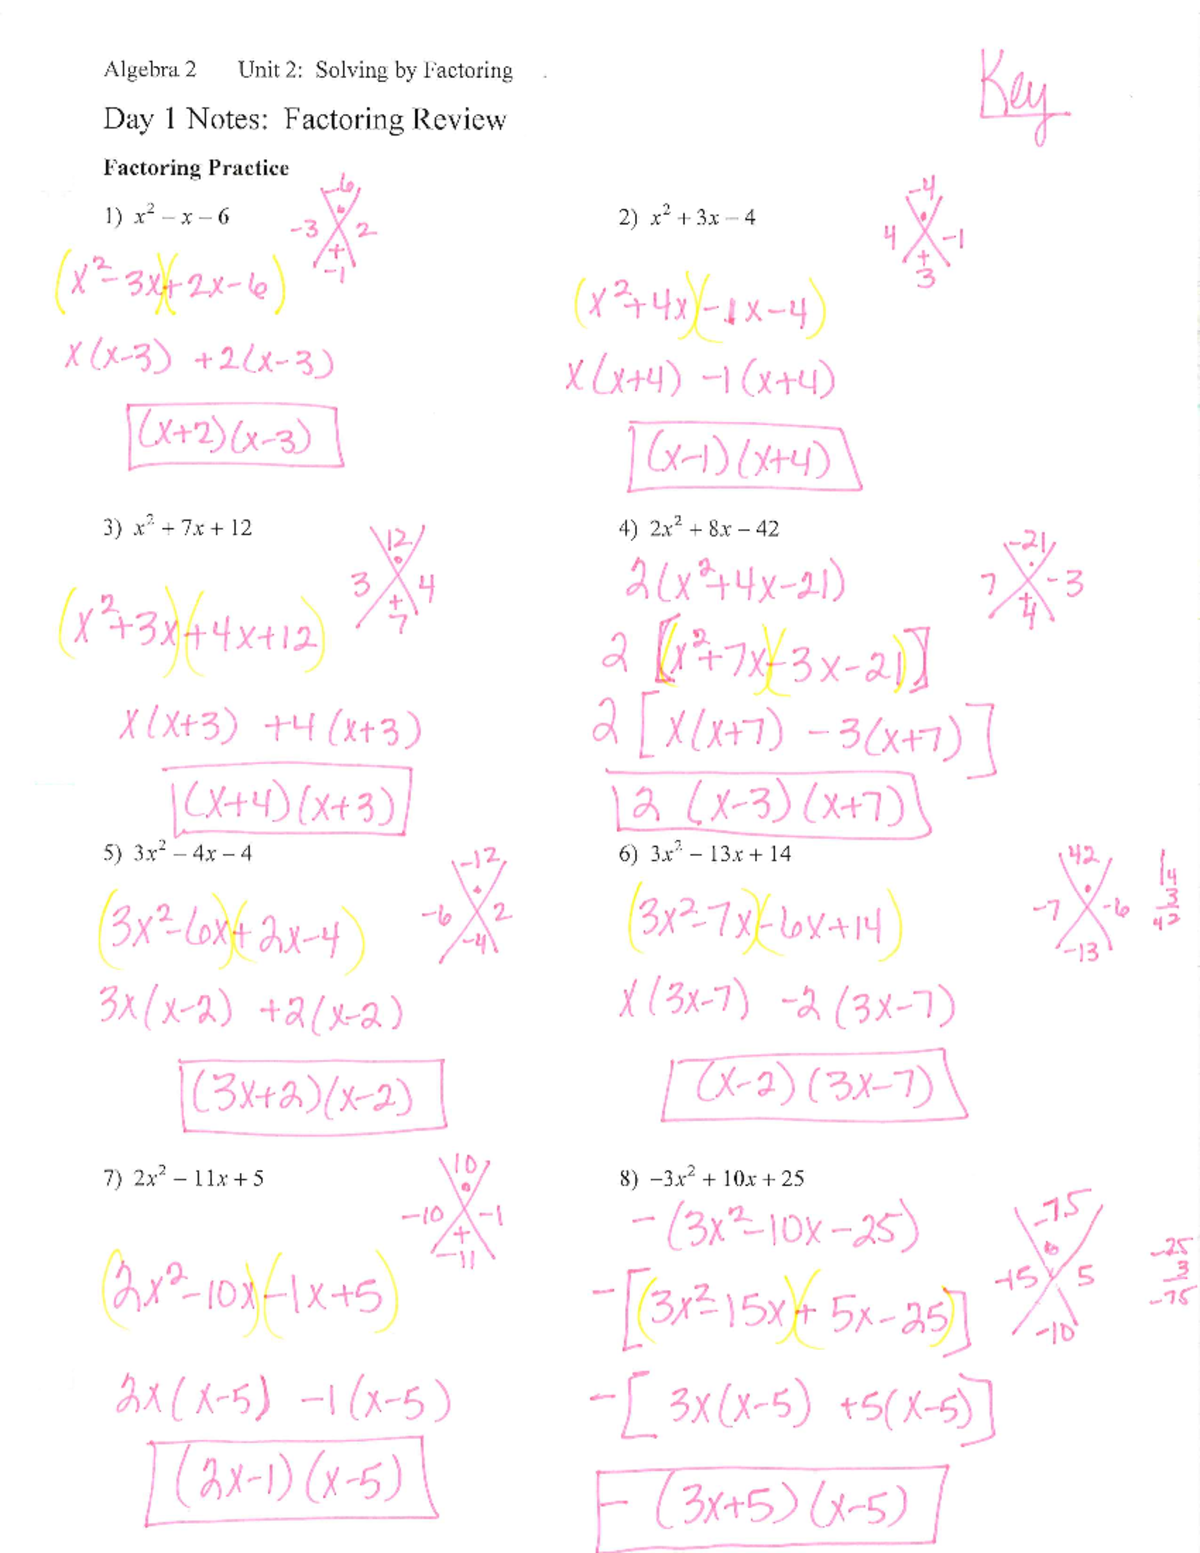 Algebra 2 Unit 2: Solving by Factoring
Key
Day 1 Notes: Factoring Review
Factoring Practice
1) x² – x – 6
-6
-3 2
+
-1
(x²-3x)(+2x-6)
x(x-3) +2(x-3)
(x+2)(x-3)
2) x² + 3x – 4
-4
4 -1
+
3
(x²+4x)(-1x-4)
x(x+4) -1(x+4)
(x-1)(x+4)
3) x² + 7x + 12
12
3 4
+
7
(x²+3x)(+4x+12)
x(x+3) +4(x+3)
(x+4)(x+3)
4) 2x² + 8x – 42
-21
7 -3
+
4
2(x²+4x-21)
2[(x²+7x)(-3x-21)]
2[x(x+7) -3(x+7)]
2 (x-3)(x+7)
5) 3x² – 4x – 4
-12
-6 2
-4
(3x²-6x)(+2x-4)
3x(x-2) +2(x-2)
(3x+2)(x-2)
6) 3x² – 13x + 14
42
-7 -6
-13
14
3
42
(3x²-7x)(-6x+14)
x(3x-7) -2(3x-7)
(x-2)(3x-7)
7) 2x² – 11x + 5
10
-10 -1
+
-11
(2x²-10x)(-1x+5)
2x(x-5) -1(x-5)
(2x-1)(x-5)
8) –3x² + 10x + 25
-75
-15 5
-10
-25
3
-75
-(3x²-10x-25)
-[(3x²-15x)(+5x-25)]
-[3x(x-5) +5(x-5)]
-(3x+5)(x-5)